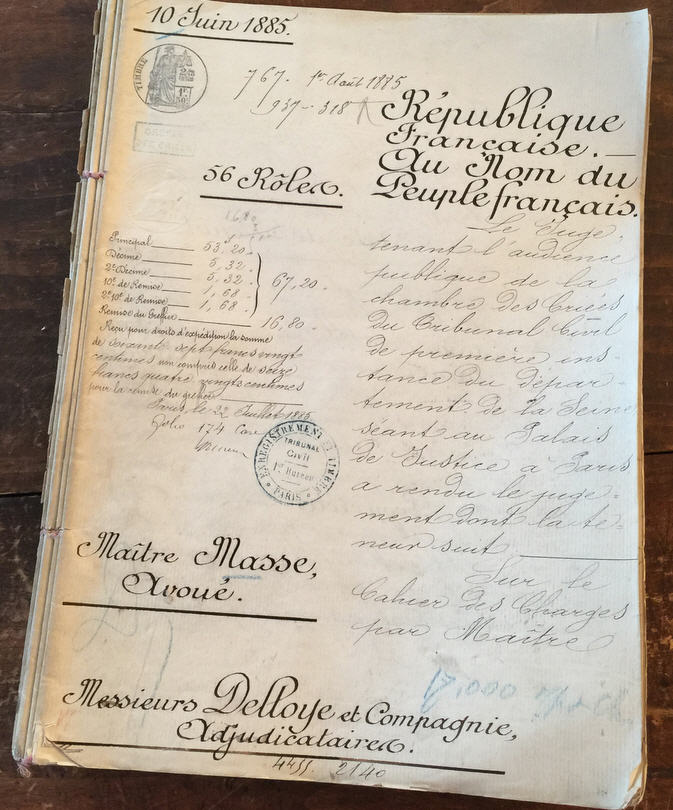 10 Juin 1885.
TIMBRE
767. 1er Août 1885
937 - 318
République
Française. —
Au Nom du
Peuple français.
56 Rôles.
16,80
Principal 53,20.
Décime 5,32.
2e Décime 5,32
10e de Remise 1,68
2e 10e de Remise 1,68
67,20.
Remise du Greffier 16,80.
Reçu pour droits d'expédition la somme
de soixante sept francs vingt
centimes non compris celle de seize
francs quatre vingts centimes
pour la remise du greffier
Paris, le 22 Juillet 1885
folio 174 Case
ENREGISTREMENT ET TIMBRE
TRIBUNAL
Civil
1er Bureau
PARIS
Le Juge,
tenant l'audience
publique de la
chambre des Criées
du Tribunal Civil
de première ins=
tance du dépar=
tement de la Seine
séant au Palais
de Justice à Paris
a rendu le juge=
ment dont la te=
neur suit
Sur le
Cahier des Charges
par Maître
Maître Masse,
Avoué.
17,000
Messieurs Delloye et Compagnie,
Adjudicataires.
4455. 2140